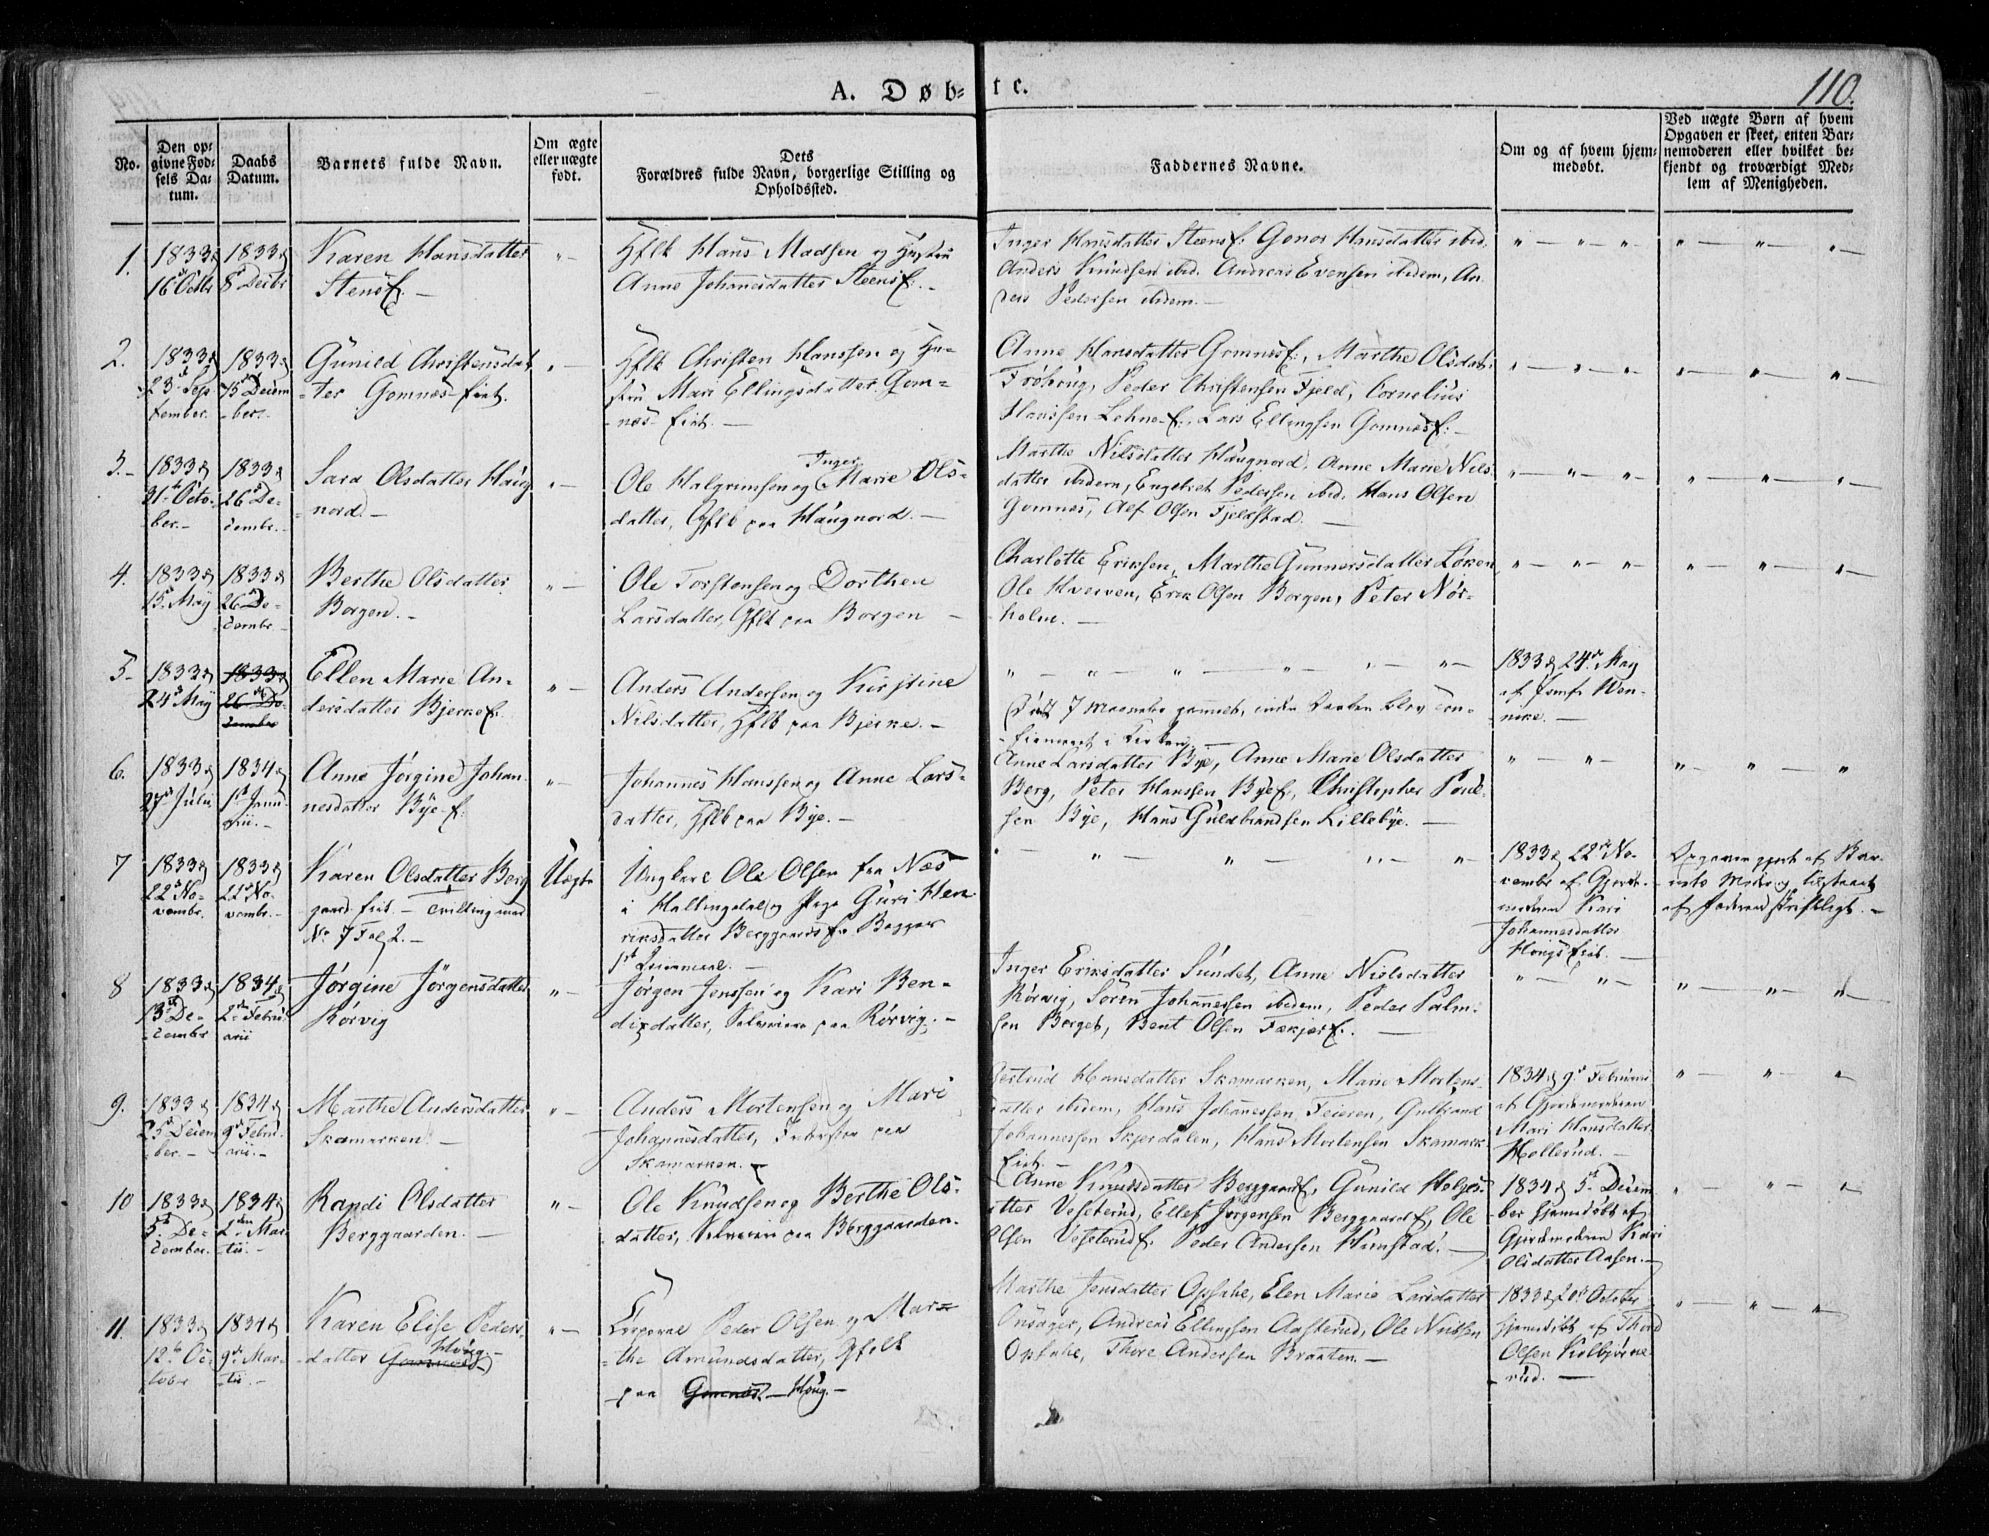 A. Døb-
te.
110.
No.
Den op-
givne Fød-
sels Da-
tum.
Daabs
Datum.
Barnets fulde Navn.
Om ægte
eller uægte
født.
Dets
Forældres fulde Navn, borgerlige Stilling og
Opholdssted.
Faddernes Navne.
Om og af hvem hjem-
medøbt.
Ved uægte Børn af hvem
Opgaven er skeet, enten Bar-
nemoderen eller hvilket be-
kjendt og troværdigt Med-
lem af Menigheden.
1.
1833
16 Octbr
1833
8 Decbr
Karen Hansdatter
Stens
Hans Madsen og Hustru
Anne Johanesdatter Steens
Inger Hansdatter Steens Gonor Hansdatter ibid.
Anders Knudsen ibid. Andreas Evensen ibidem, An
ders Pedersen ibidem.
2.
1833
23 Sep
tember.
1833
15 Decem
-ber.
Gunild Christensdat
-ter Gomnes-
Christen Hanssen og Hu-
stru Mari Ellingsdatter Gom-
nes
Anne Hansdatter Gomnes, Marthe Olsdat
Frøhaug, Peder Christensen Fjeld, Cornelius
Hanssen Lehne, Lars Ellingsen Gomnes
3.
1833
31 Octo-
ber.
1833
26 De-
cembr.
Sara Olsdatter Haug
nord.
Inger
Ole Halgrimsen og Marie Ols-
datter, Gflk paa Haugnord.
Marthe Nilsdatter Haugnord, Anne Marie Nils
datter ibidem, Engebret Pedersen ibid. Hans Olsen
Gomnes, Alf Olsen Fjeldstad.
4.
1833
15 May
1833
26 De-
cembr
Berthe Olsdatter
Borgen.
Ole Torstensen og Dorthea
Larsdatter, Gflk paa Borgen
Charlotte Eriksen, Marthe Gunnersdatter Løken
Ole Hverven, Erik Olsen Borgen, Peter Nør-
holm.
5
1833
24 May
1833
26 De-
cember
Ellen Marie An-
dersdatter Bjerke
Anders Andersen og Kirstine
Nilsdatter, Hflk paa Bjerke.
Død 7 Maaneder gammel, inden Daaben blev con-
-firmeret i Kirken
1833 24 May
af Jomfr Wen-
nike.
6.
1833
27 Julii
1834
1 Janu
arii.
Anne Jørgine Johan
nesdatter Bye
Johannes Hanssen og Anne Lars-
datter, Hflk paa Bye.
Anne Larsdatter Bye, Anne Marie Olsdatter
Berg, Peter Hanssen Bye, Christopher Poul-
sen Bye, Hans Guldbrandsen Lillebye.
7
1833
22 No-
vembr.
1833
22 No-
vembr.
Karen Olsdatter Berg
gaard - Tvilling med
No 7 Fol 2.
Uægte
Ungkarl Ole Olsen fra Næs
i Hallingdal og Pige Guri Hen
riksdatter Berggaards Begges
1 Leiermaal.
1833 22 No-
vembr af Gjorde-
moderen Kari
Johannesdatter
Houg
Opgaven gjort af Bar-
nets Moder og tilstaaet
af Faderen skriftligt.
8
1833
13 De-
cember
1834
2 Febru
arii
Jørgine Jørgensdatter
Rørvig
Jørgen Jenssen og Kari Ben-
dixdatter, Selveiere paa Rørvig.
Inger Eriksdatter Sundet, Anne Nielsdatter
Rørvig, Søren Johannessen ibidem, Peder Palm-
sen Berget, Bent Olsen
9.
1833
25 Decem
ber.
1834
9 Febru
arii.
Marthe Andersdatter
Skamarken.
Anders Mortensen og Mari
Johannesdatter, paa
Skamarken.
Gertrud Hansdatter Skamarken, Marie Mortens
datter ibidem, Hans Johannessen Feieren, Gulbrand
Johannessen Skjerdalen, Hans Mortensen Skamark
1834 9 Februarii
af Gjordemoderen
Mari Hansdatter
Hollerud.
10
1833
5 De-
cember.
1834
2 Mar-
tii.
Randi Olsdatter
Berggaarden.
Ole Knudsen og Berthe Ols-
datter, Selveiere paa Berggaarden.
Anne Knudsdatter Berggaard, Gunild Helges-
datter Veseterud, Ellef Jørgensen Berggaard, Ole
Olsen Veseterud. Peder Andersen Hamstad.
1834 5 Decem
ber hjemmedøbt af
Gjordemoderen Kari
Olsdatter Aasen.
11
1833
12 Oc-
tober
1834
9 Mar-
tii.
Karen Elise Peders
-datter Gomnes Houg
Corporal Peder Olsen og Mar-
the Amundsdatter, Gflk
paa Gomnes. Houg.
Marthe Jensdatter Opsahe, Elen Marie Larsdatter
Onsager, Andreas Ellingsen Aasterud, Ole Nielsen
Opsahe, Thore Andersen Braaten.
1833 20 October
hjemmedøbt af Thord
Olsen Kolbjørne-
rud.